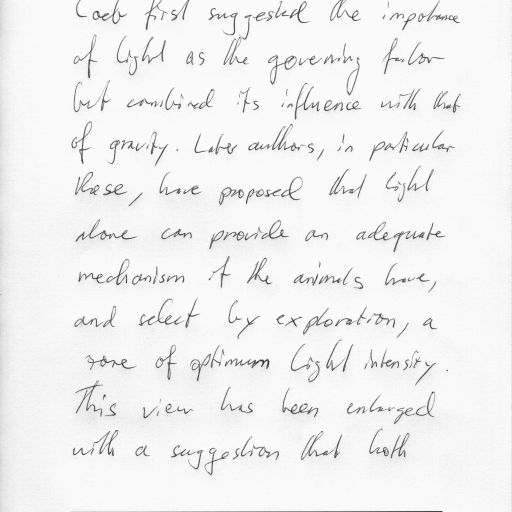 Loeb first suggested the importance
of light as the governing factor
but combined its influence with that
of gravity. Later authors, in particular
Rose, have proposed that light
alone can provide an adequate
mechanism if the animals have,
and select by exploration, a
zone of optimum light intensity.
This view has been enlarged
with a suggestion that both